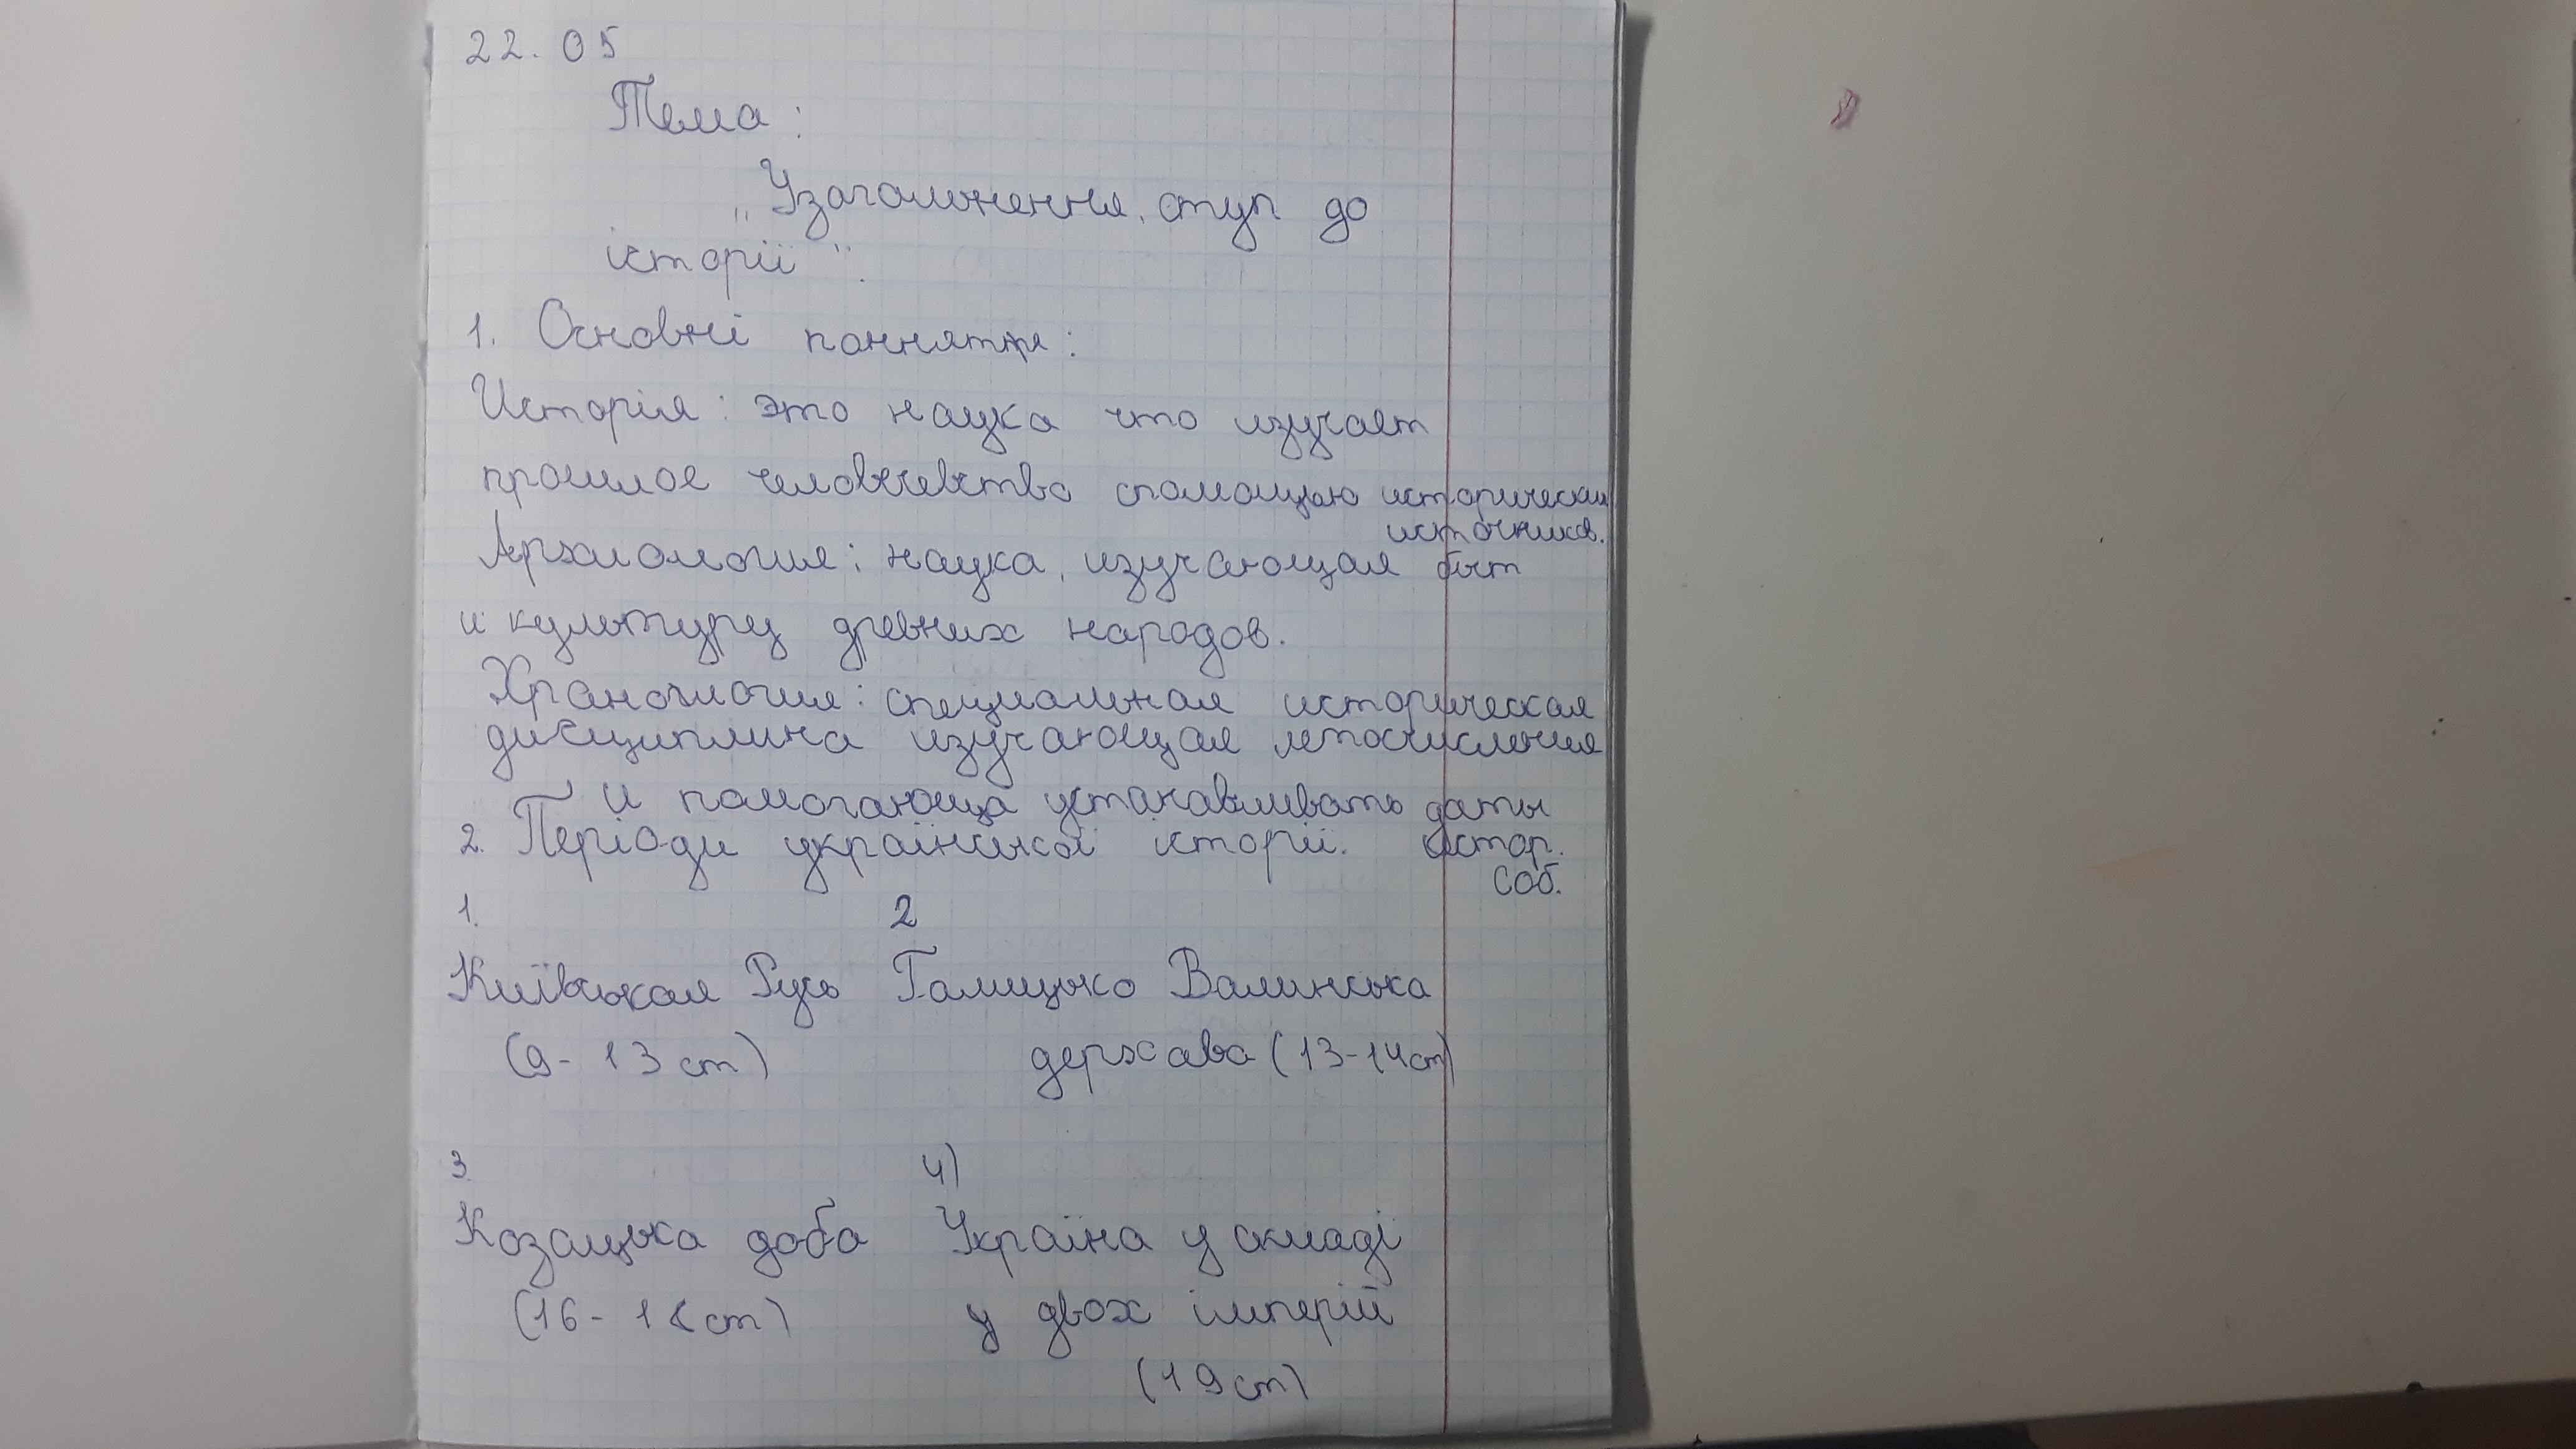 22.05
Тема:
„Узагальнення, ступ до
історії".
1. Основні понняття:
Исторія: это наука что изучает
прошлое человечевство спомощью исторически
источников.
Археология: наука, изучающая быт
и культуру древних народов.
Хранология: специальная историческая
дисциплина изучающая летосчисления
и помогающа устанавливать даты
2. Періоди української історії. истор.
соб.
1. 2
Київськая Русь Галицько Валинська
(9-13 ст) держава (13-14ст)
3. 4)
Козацька доба Україна у складі
(16-18 ст) у двох імперій
(19ст)